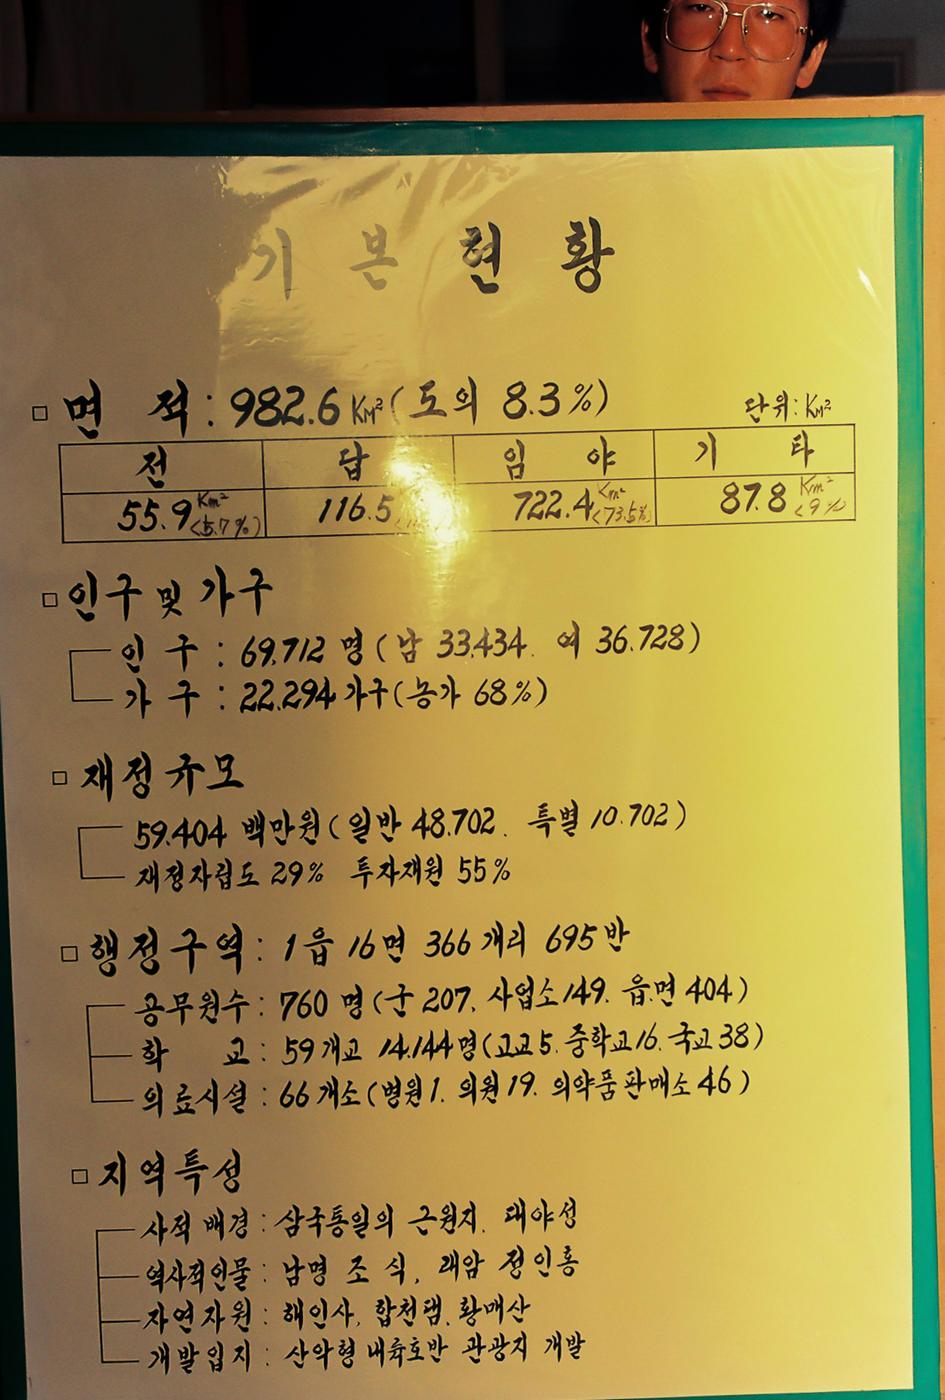 기 본 현 황
□ 면 적 : 982.6 KM² (도의 8.3%) 단위: KM²
전 답 임 야 기 타
55.9 Km² <5.7%> 116.5 722.4 Km² <73.5%> 87.8 Km² <9%>
□ 인구 및 가구
인 구 : 69.712 명 (남 33.434. 여 36.728)
가 구 : 22.294 가구 (농가 68%)
□ 재정규모
59.404 백만원 (일반 48.702. 특별 10.702)
재정자립도 29% 투자재원 55%
□ 행정구역 : 1읍 16면 366개리 695반
공무원수 : 760 명 (군 207. 사업소 149. 읍.면 404)
학 교 : 59개교 14.144명 (고교5. 중학교16. 국교38)
의료시설 : 66개소 (병원1. 의원19. 의약품판매소46)
□ 지역특성
사적배경 : 삼국통일의 근원지. 대야성
역사적인물 : 남명 조 식, 래암 정인홍
자연자원 : 해인사, 합천댐, 황매산
개발입지 : 산악형 내륙호반 관광지 개발